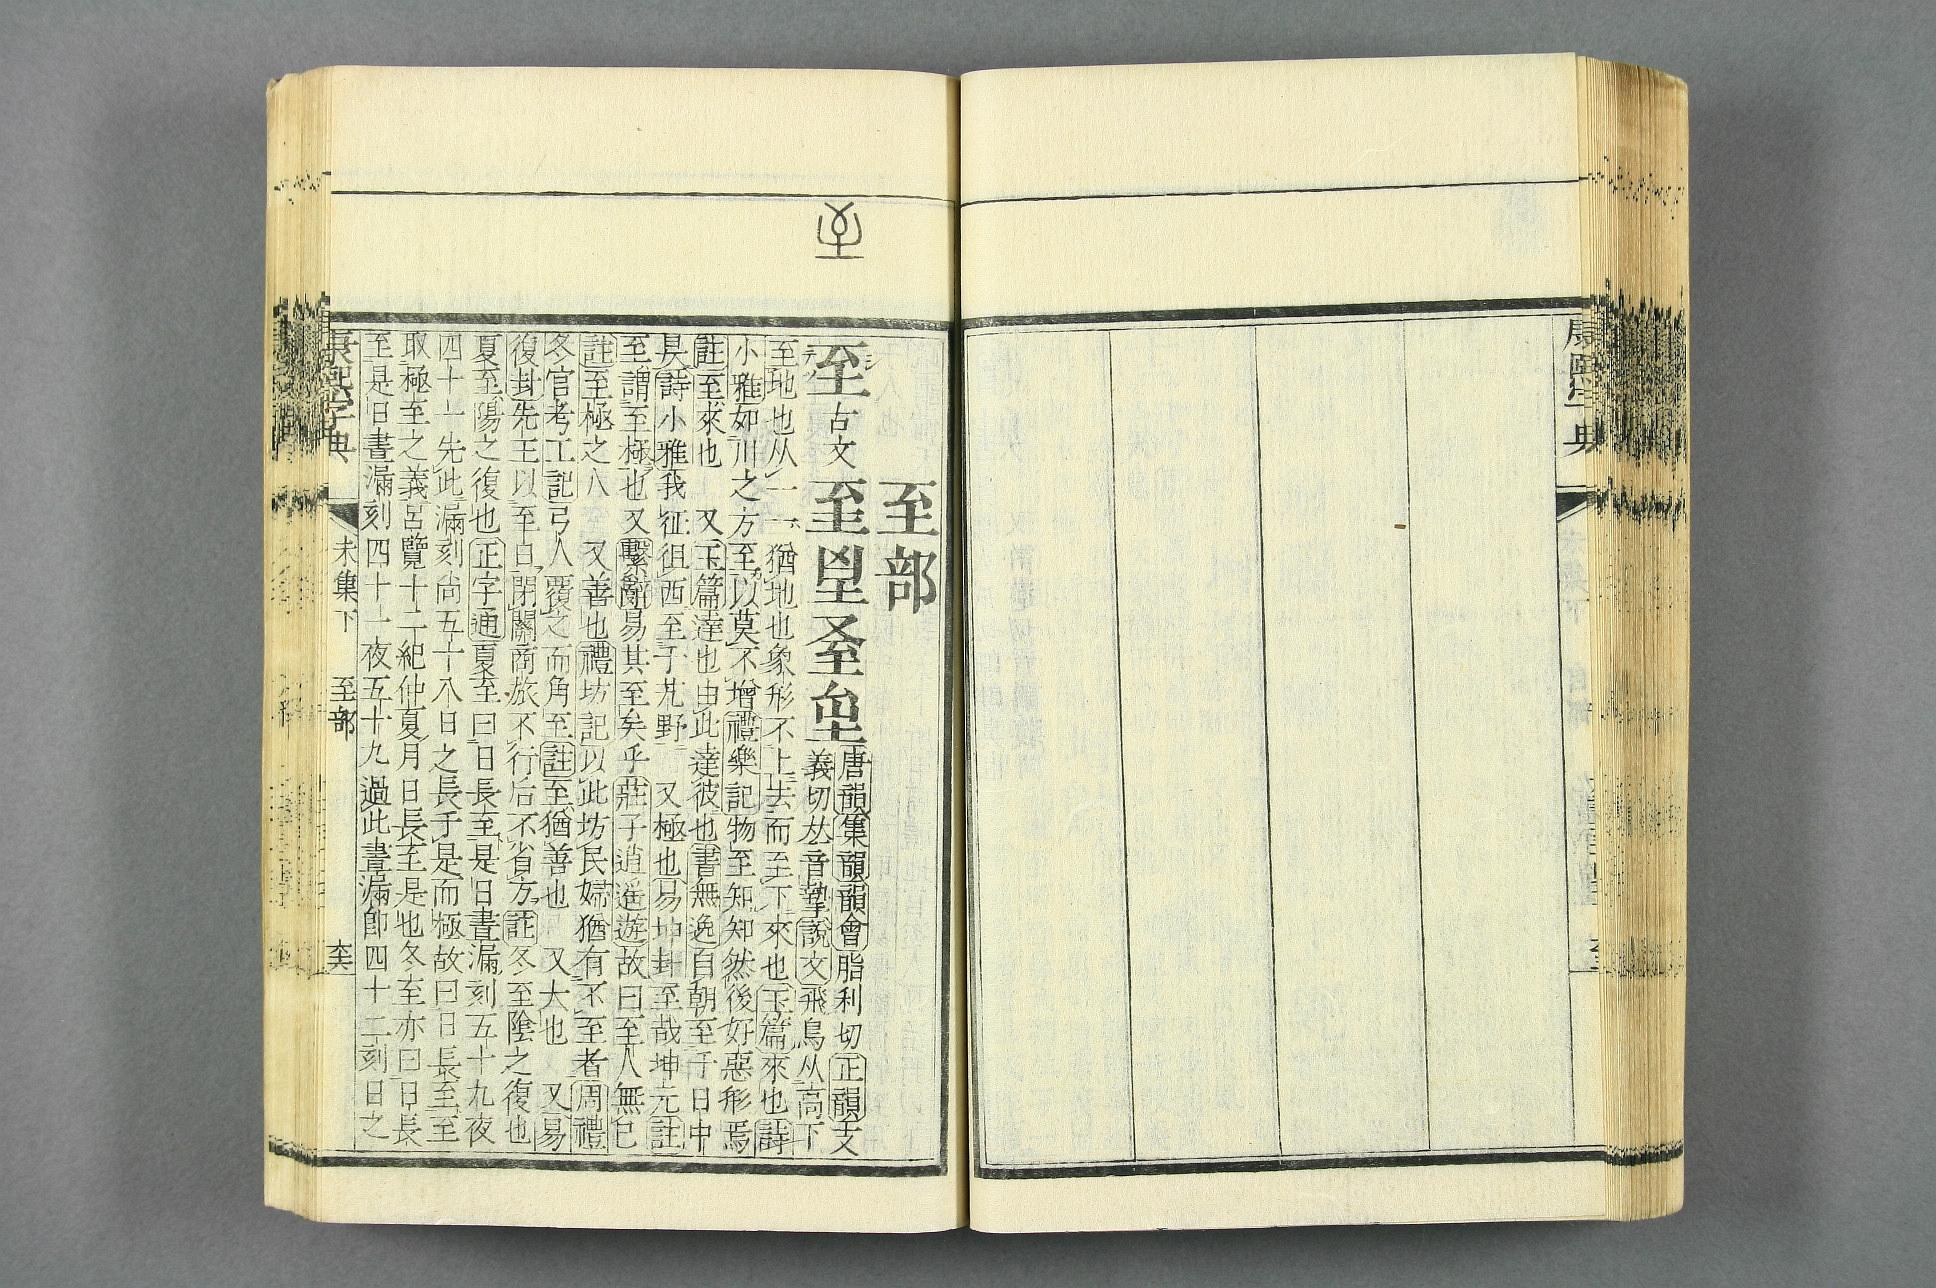 康熙字典
至部
至 古文
唐韻集韻韻會脂利切正韻支
義切𠀤音摯說文飛鳥从高下
至地也从一一猶地也象形不上去而至下來也玉篇來也詩
小雅如川之方至以莫不增禮樂記物至知知然後好惡形焉
註至來也 又玉篇達也由此達彼也書無逸自朝至于日中
昃詩小雅我征徂西至于艽野 又極也易坤卦至哉坤元註
至謂至極也又繫辭易其至矣乎莊子逍遙遊故曰至人無已
註至極之人 又善也禮坊記以此坊民婦猶有不至者周禮
冬官考工記弓人覆之而角至註至猶善也 又大也 又易
復卦先王以至日閉關商旅不行后不省方註冬至陰之復也
夏至陽之復也正字通夏至曰日長至是日晝漏刻五十九夜
四十一先此漏刻尚五十八日之長于是而極故曰日長至至
取極至之義呂覽十二紀仲夏月日長至是也冬至亦曰日長
至是日晝漏刻四十一夜五十九過此晝漏卽四十二刻日之
康熙字典 未集下 至部